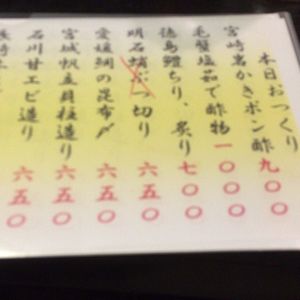 本日おつくり
宮崎岩かきポン酢 九〇〇
毛蟹塩茹で酢物 一〇〇〇
徳島鱧ちり、炙り 七〇〇
明石蛸ぶつ切り 六五〇
愛媛鯛の昆布〆 六五〇
宮城帆立貝柱造り 六五〇
石川甘エビ造り 六五〇
長崎